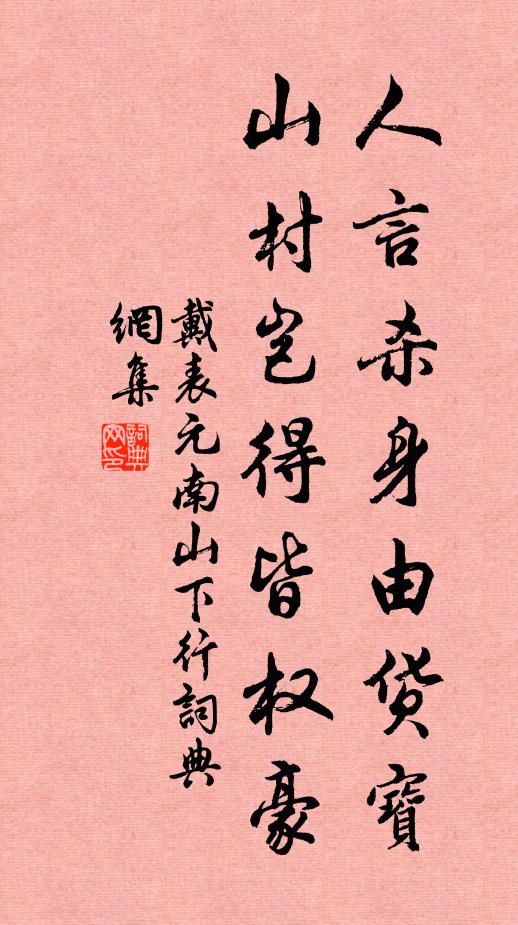 人言杀身由货寶
山村岂得皆权豪
戴表元南山下行詞典
網集
詞典网印